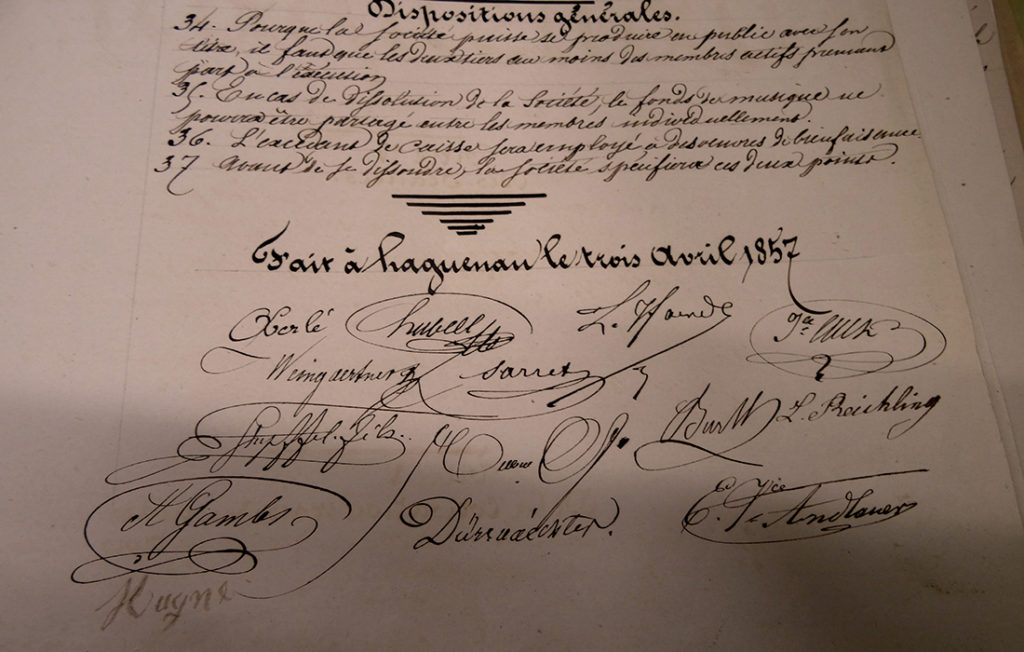 Dispositions générales.
34. Pour que la société puisse se produire en public avec son
titre, il faut que les deux tiers au moins des membres actifs prennent
part à l'exécution
35. En cas de dissolution de la Société, le fonds de musique ne
pourra être partagé entre les membres individuellement.
36. L'excédant de caisse sera employé à des oeuvres de bienfaisance
37 Avant de se dissoudre, la société spécifiera ces deux points.
Fait à haguenau le trois Avril 1857
Oberlé
Weingaertner Sarret
L. Reichling
A Gambs
E. Andlauer
Hugné